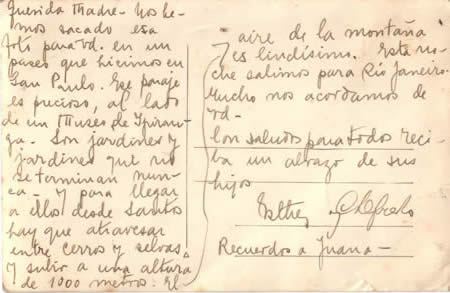 Querida Madre- Nos he-
mos sacado esa
foto para Vd. en un
paseo que hicimos en
San Paulo. Ese paraje
es precioso, al lado
de un Museo de Ypiran-
ga. Son jardines y
jardines que no
se terminan nun-
ca- y para llegar
a ellos desde Santos
hay que atravesar
entre cerros y selvas,
y subir a una altura
de 1000 metros. El
aire de la montaña
es lindísimo. Esta no-
che salimos para Río Janeiro.
Mucho nos acordamos de
Vd-
Con saludos para todos reci-
ba un abrazo de sus
hijos
Esther y Alfredo
Recuerdos a Juana-